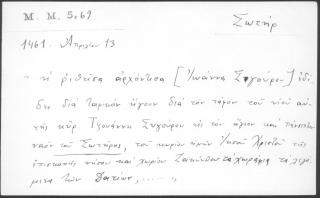 Μ. Μ. 5,69
Σωτήρ
1461. Ἀπριλίου 13
"ἡ ῥηθεῖσα ἀρχόντισα [Ἰωάννα Συγούρου] ἐδί
διὰ ταφικὸν ἤγουν διὰ τὸν τάφον τοῦ υἱοῦ αὐ-
τῆς κὺρ Τζουάννη Συγούρου εἰς τὸν ἅγιον καὶ πάνσεπτον
ναὸν τοῦ Σωτῆρος, τοῦ κυρίου ἡμῶν Ἰησοῦ Χριστοῦ τῆς
ἐπισκοπῆς νήσου καὶ χωρίου Ζακύνθου τὰ χωράφια τὰ λεγό-
μενα τῶν ....."